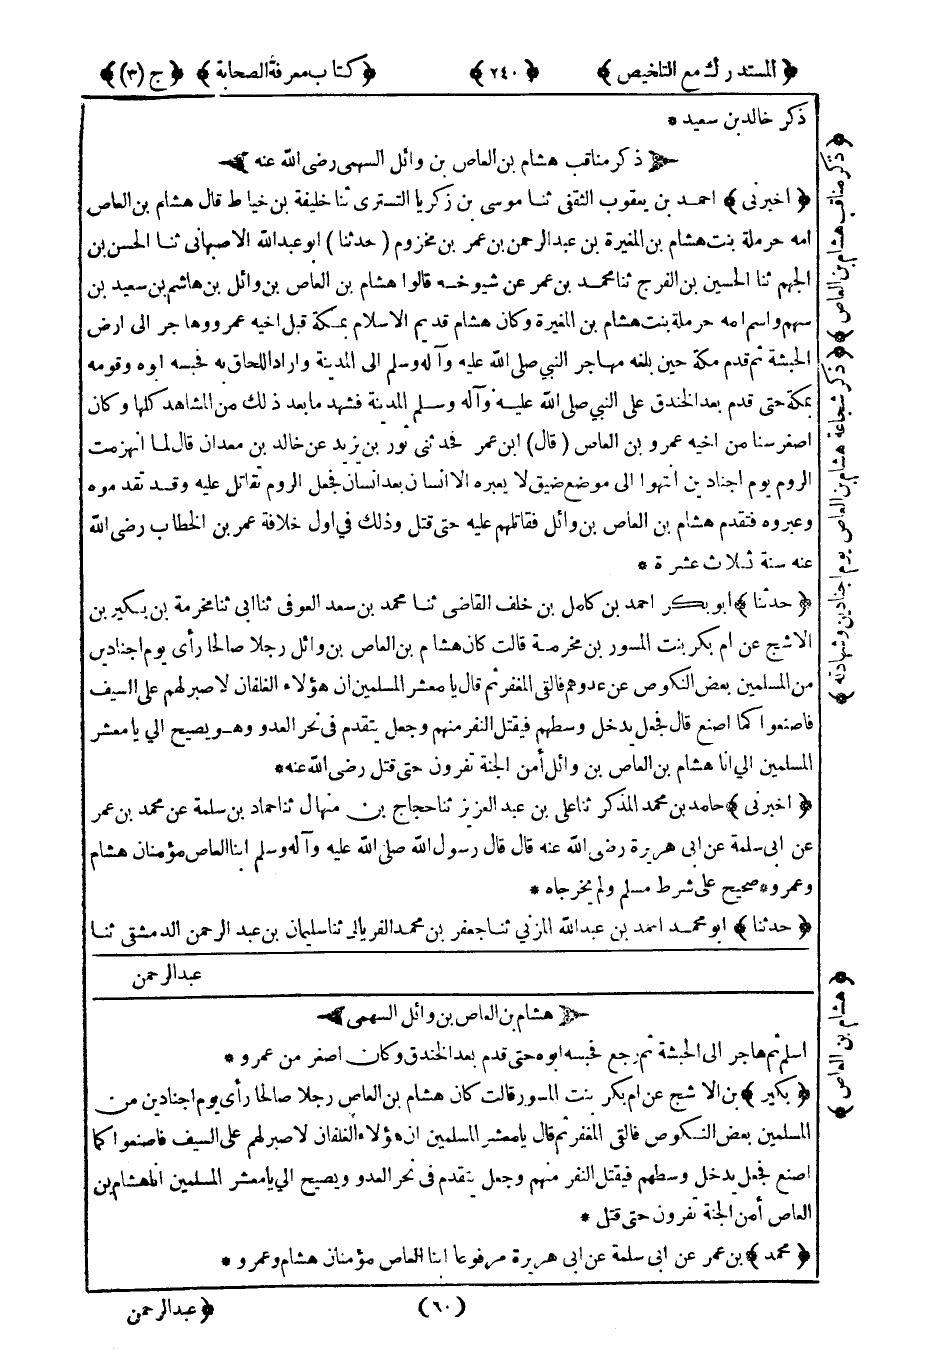 ﴿ المستدرك مع التلخيص ﴾ ﴿ ٢٤٠ ﴾ ﴿ كتاب معرفة الصحابة ﴾ ﴿ ج (٣) ﴾
ذكر خالد بن سعيد *
ذكر مناقب هشام بن العاص بن وائل السهمى رضى الله عنه
﴿ اخبرنى ﴾ احمد بن يعقوب الثقفى ثنا موسى بن زكريا التسترى ثنا خليفة بن خياط قال هشام بن العاص
امه حرملة بنت هشام بن المغيرة بن عبد الرحمن بن عمر بن مخزوم ( حدثنا ) ابو عبد الله الاصبهانى ثنا الحسن بن
الجهم ثنا الحسين بن الفرج ثنا محمد بن عمر عن شيوخه قالوا هشام بن العاص بن وائل بن هاشم بن سعيد بن
سهم واسم امه حرملة بنت هشام بن المغيرة وكان هشام قديم الاسلام بمكة قبل اخيه عمرو وهاجر الى ارض
الحبشة ثم قدم مكة حين بلغه مهاجر النبي صلى الله عليه وآله وسلم الى المدينة واراد اللحاق به فحبسه ابوه وقومه
بمكة حتى قدم بعد الخندق على النبي صلى الله عليه وآله وسلم المدينة فشهد ما بعد ذلك من المشاهد كلها وكان
اصغر سنا من اخيه عمرو بن العاص ( قال) ابن عمر فحدثنى ثور بن يزيد عن خالد بن معدان قال لما انهزمت
الروم يوم اجنادين انتهوا الى موضع ضيق لا يعبره الا انسان بعد انسان فجعل الروم تقاتل عليه وقد تقدموه
وعبروه فتقدم هشام بن العاص بن وائل فقاتلهم عليه حتى قتل وذلك فى اول خلافة عمر بن الخطاب رضى الله
عنه سنة ثلاث عشرة *
﴿ حدثنا ﴾ ابو بكر احمد بن كامل بن خلف القاضى ثنا محمد بن سعد العوفى ثنا ابى ثنا مخرمة بن بكير بن
الاشج عن ام بكر بنت المسور بن مخرمة قالت كان هشام بن العاص بن وائل رجلا صالحا رأى يوم اجنادين
من المسلمين بعض النكوص عن عدوهم فالقى المغفر ثم قال يا معشر المسلمين ان هؤلاء الغلفان لا صبر لهم على السيف
فاصنعوا كما اصنع قال فجعل يدخل وسطهم فيقتل النفر منهم وجعل يتقدم فى نحر العدو وهو يصيح الي يا معشر
المسلمين الي انا هشام بن العاص بن وائل أمن الجنة تفرون حتى قتل رضى الله عنه*
﴿ اخبرنى ﴾ حامد بن محمد المذكر ثنا على بن عبد العزيز ثنا حجاج بن منهال ثنا حماد بن سلمة عن محمد بن عمر
عن ابى سلمة عن ابى هريرة رضى الله عنه قال قال رسول الله صلى الله عليه وآله وسلم ابنا العاص مؤمنان هشام
وعمرو* صحيح على شرط مسلم ولم يخرجاه *
﴿ حدثنا ﴾ ابو محمد احمد بن عبد الله المزني ثنا جعفر بن محمد الفريابى ثنا سليمان بن عبد الرحمن الدمشقى ثنا
عبد الرحمن
هشام بن العاص بن وائل السهمى
اسلم ثم هاجر الى الحبشة ثم رجع فحبسه ابوه حتى قدم بعد الخندق وكان اصغر من عمرو *
﴿ بكير ﴾ بن الاشج عن ام بكر بنت المسور قالت كان هشام بن العاص رجلا صالحا رأى يوم اجنادين من
المسلمين بعض النكوص فالقى المغفر ثم قال يا معشر المسلمين ان هؤلاء الغلفان لا صبر لهم على السيف فاصنعوا كما
اصنع فجعل يدخل وسطهم فيقتل النفر منهم وجعل يتقدم فى نحر العدو ويصيح الي يا معشر المسلمين انا هشام بن
العاص أمن الجنة تفرون حتى قتل *
﴿ محمد ﴾ بن عمر عن ابى سلمة عن ابى هريرة مرفوعا ابنا العاص مؤمنان هشام وعمرو *
(٦٠) ﴿ عبد الرحمن
﴿ ذكر مناقب هشام بن العاص ﴾ ﴿ ذكر شجاعة هشام بن العاص يوم اجنادين وشهادته ﴾
﴿ هشام بن العاص ﴾